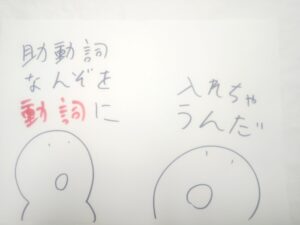 助動詞
なんぞを
動詞に
入れちゃ
うんだ